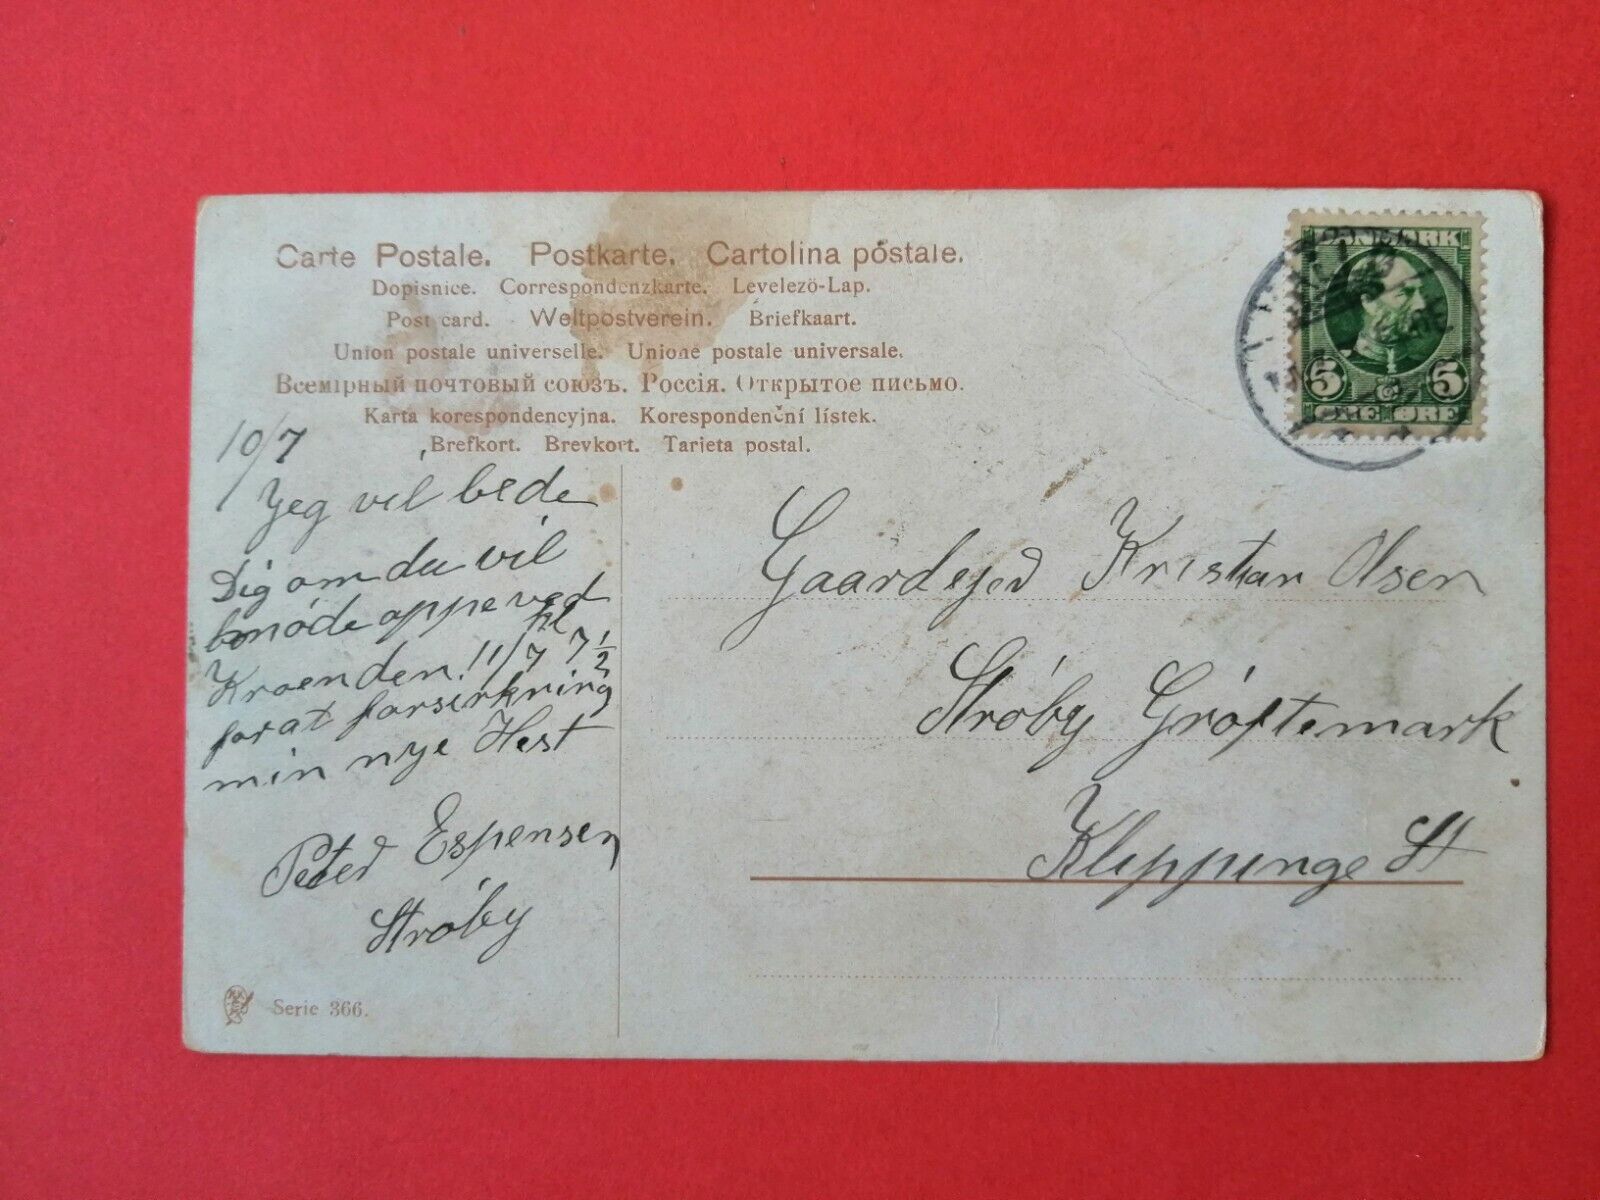 Carte Postale. Postkarte. Cartolina postale.
Dopisnice. Correspondenzkarte. Levelezö-Lap.
Post card. Weltpostverein. Briefkaart.
Union postale universelle. Unione postale universale.
Всемірный почтовый союзъ. Россія. Открытое письмо.
Karta korespondencyjna. Korespondenční lístek.
Brefkort. Brevkort. Tarjeta postal.
10/7
Jeg vil bede
Dig om du vil
møde oppe ved
Kroen den 11/7 kl 7½
for at forsirkring
min nye Hest
Peter Espensen
Ströby
Serie 366.
DANMARK
5 5
ØRE ØRE
Gaardejer Kristian Olsen
Ströby Gröftemark
Klippinge St